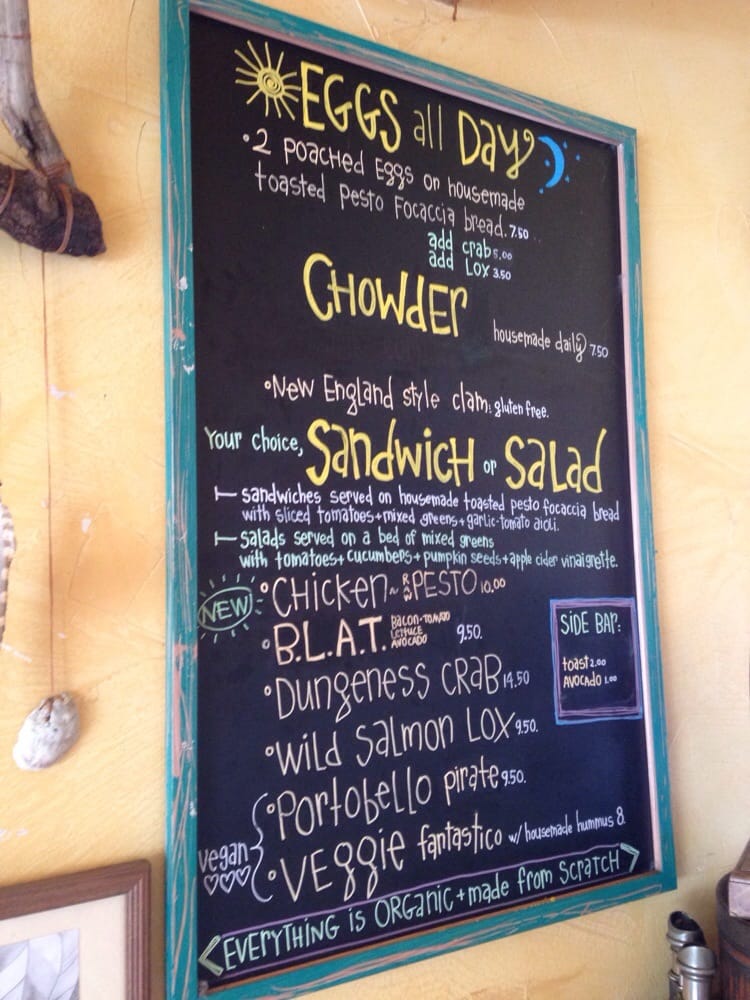 EGGS all Day
• 2 poached Eggs on housemade
toasted pesto Focaccia bread. 7.50
add crab 5.00
add Lox 3.50
CHOWDER
housemade daily 7.50
• New England style clam: gluten free.
Your choice, Sandwich or Salad
sandwiches served on housemade toasted pesto focaccia bread
with sliced tomatoes + mixed greens + garlic-tomato aioli.
Salads served on a bed of mixed greens
with tomatoes + cucumbers + pumpkin seeds + apple cider vinaigrette.
NEW • Chicken ~ PESTO 10.00
• B.L.A.T. Bacon-Tomato
Lettuce
Avocado 9.50.
• Dungeness CRAB 14.50
• Wild Salmon LOX 9.50.
• Portobello pirate 9.50.
vegan
• VEGGIE fantastico w/ housemade hummus 8.
SIDE BAR:
toast 2.00
AVOCADO 1.00
EVERYTHING is ORGANIC + made from SCRATCH